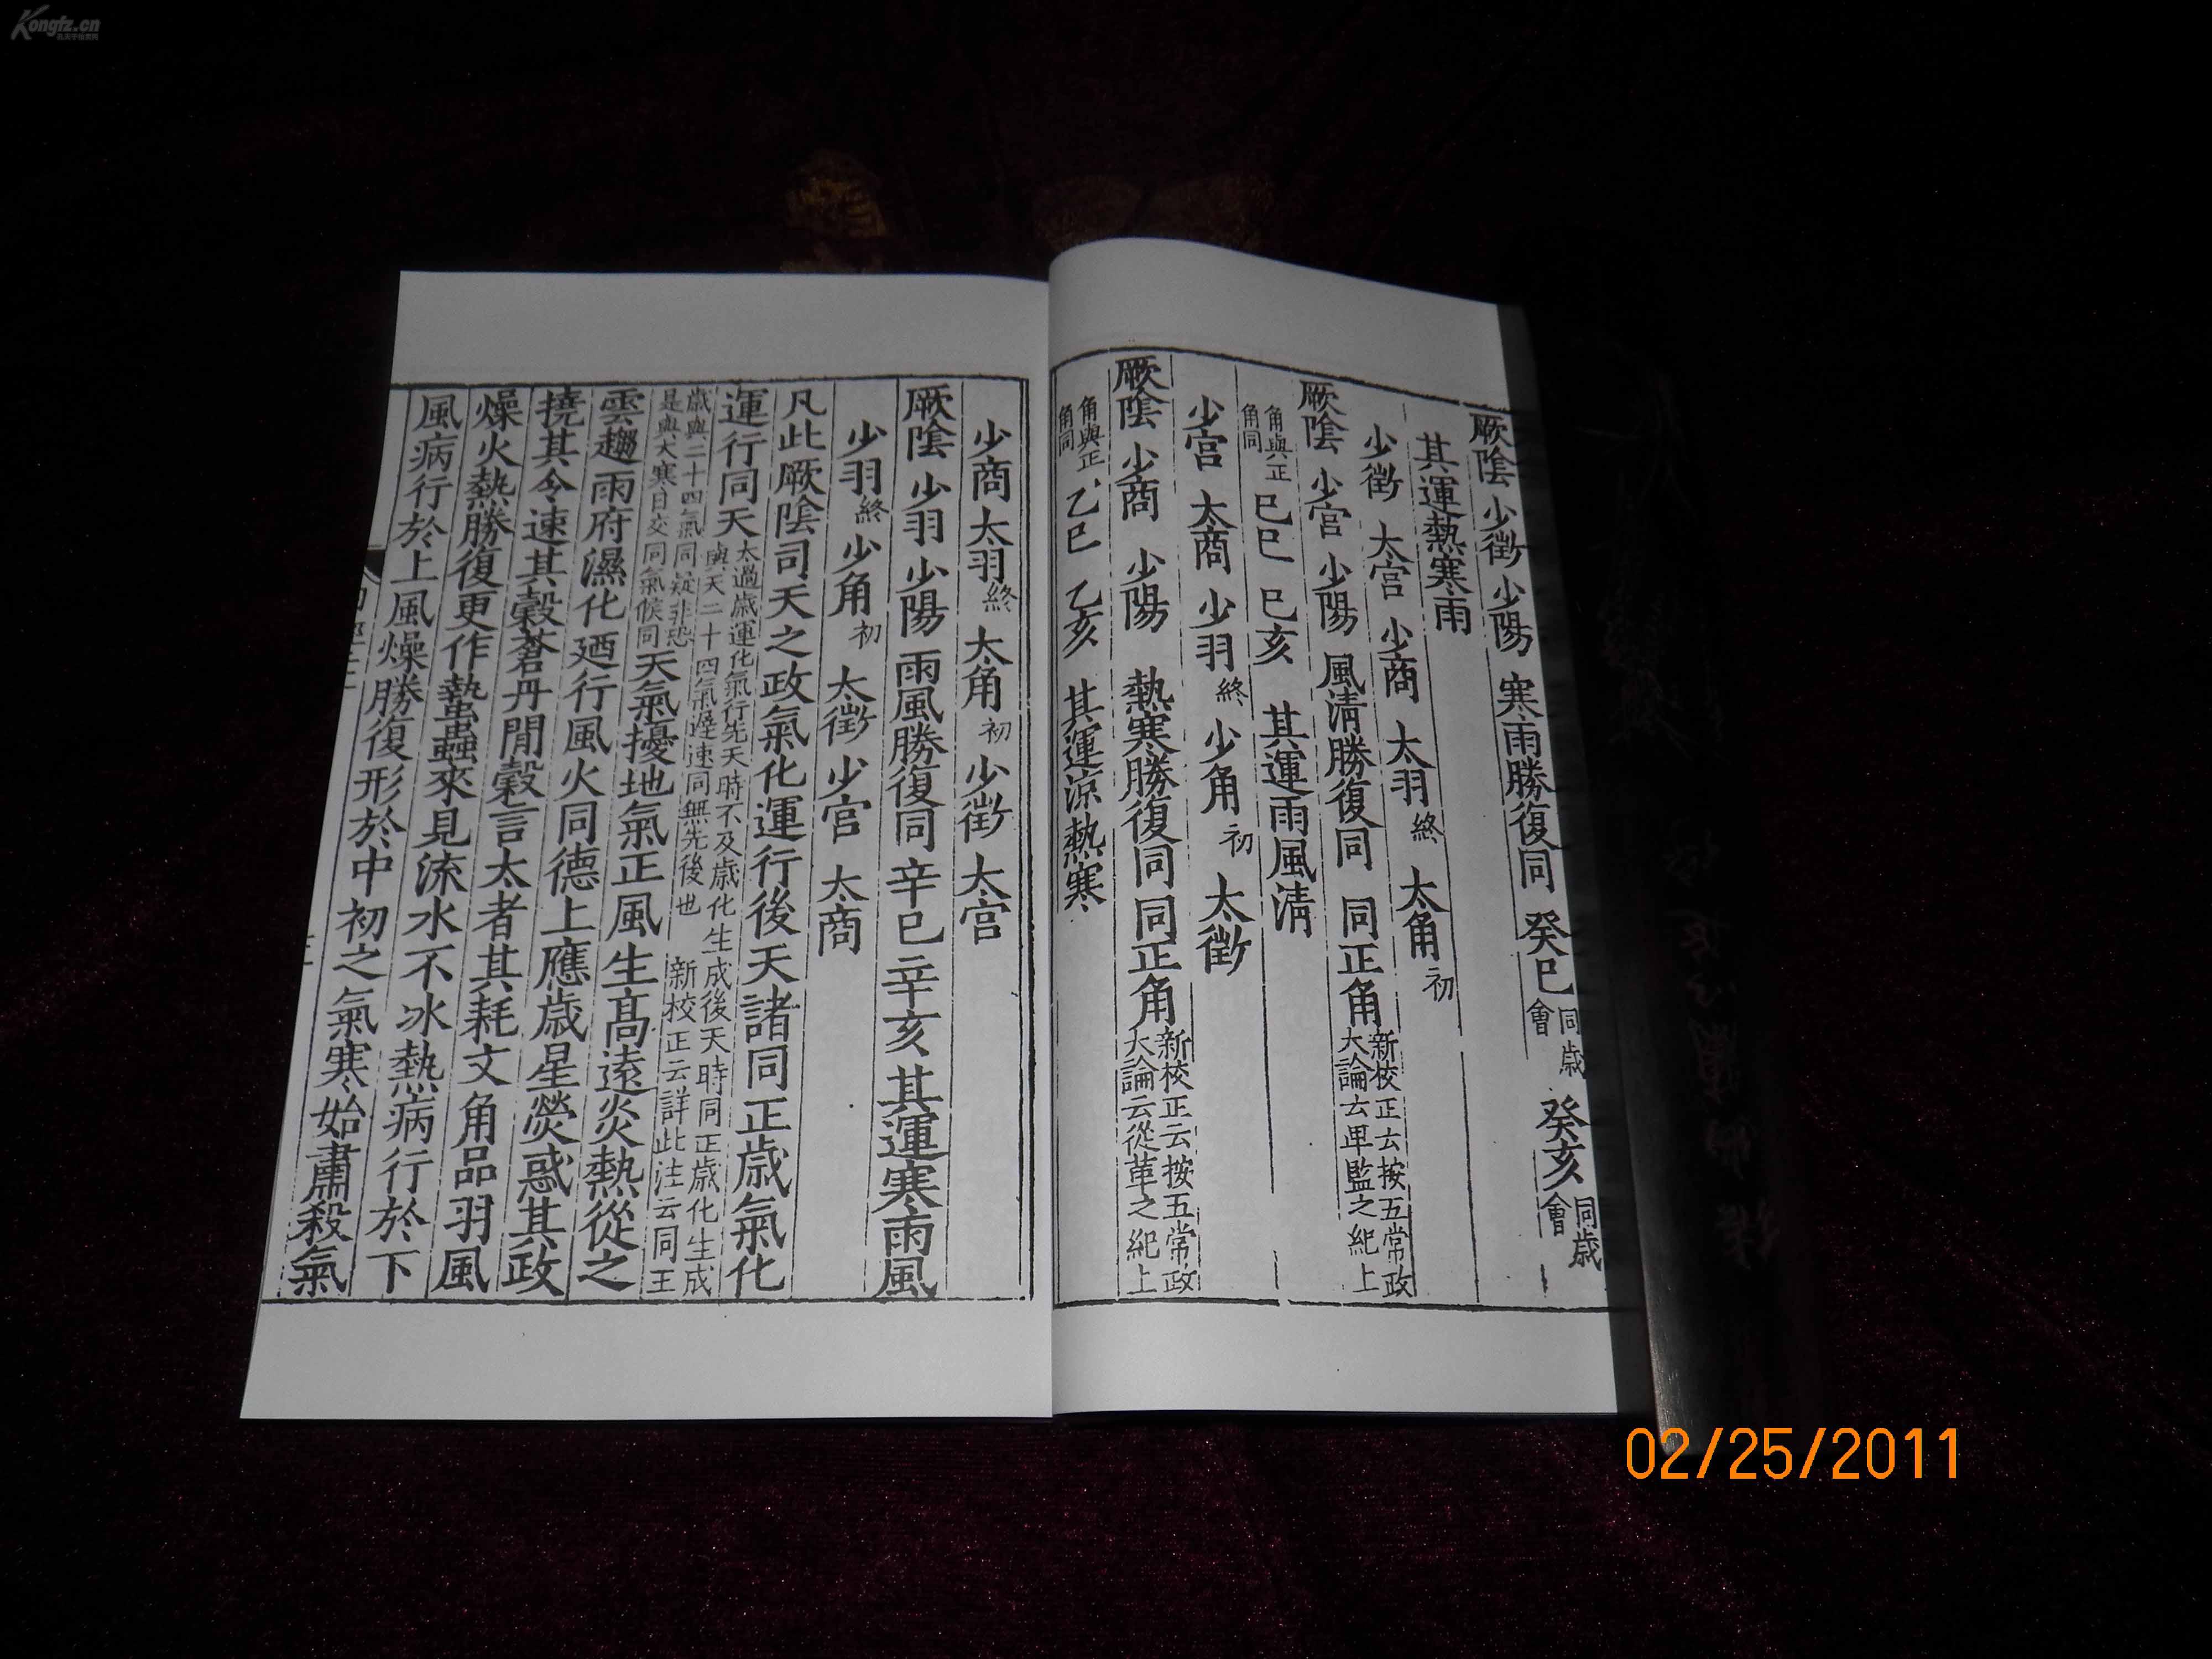 Kongfz.cn
厥陰 少徵 少陽 寒雨勝復同 癸巳同歲會 癸亥同歲會
其運熱寒雨
少徵 太宮 少商 太羽終 太角初
厥陰 少宮 少陽 風清勝復同 同正角新校正云按五常政大論云卑監之紀上
角與正角同 己巳 己亥 其運雨風清
少宮 太商 少羽終 少角初 太徵
厥陰 少商 少陽 熱寒勝復同 同正角新校正云按五常政大論云從革之紀上
角與正角同 乙巳 乙亥 其運涼熱寒
少商 太羽終 太角初 少徵 太宮
厥陰 少羽 少陽 雨風勝復同 辛巳 辛亥 其運寒雨風
少羽終 少角初 太徵 少宮 太商
凡此厥陰司天之政氣化運行後天諸同正歲氣化
運行同天太過歲運化氣行先天時不及歲化生成後天時同正歲化生成與天二十四氣遲速同無先後也 新校正云詳此注云同王
歲與二十四氣同疑非恐是與大寒日交同氣候同天氣擾地氣正風生高遠炎熱從之
雲趨雨府濕化廼行風火同德上應歲星熒惑其政
撓其令速其穀蒼丹間穀言太者其耗文角品羽風
燥火熱勝復更作蟄蟲來見流水不冰熱病行於下
風病行於上風燥勝復形於中初之氣寒始肅殺氣
02/25/2011